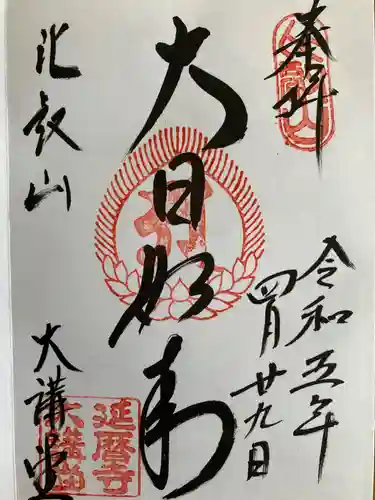 奉拝
比叡山
令和五年
四月廿九日
大日如来
比叡山
大講堂
延暦寺
大講堂